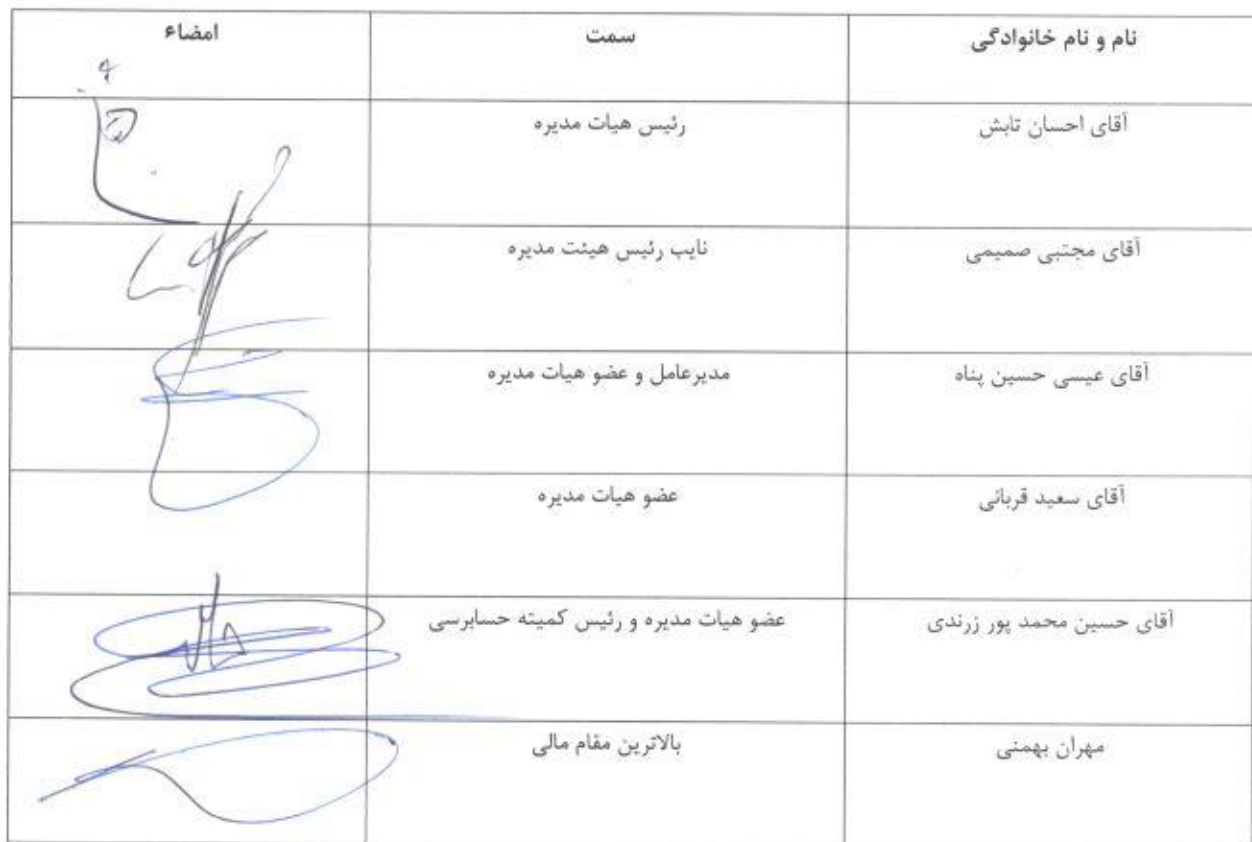 نام و نام خانوادگی سمت امضاء
آقای احسان تابش رئیس هیات مدیره
آقای مجتبی صمیمی نایب رئیس هیئت مدیره
آقای عیسی حسین پناه مدیرعامل و عضو هیات مدیره
آقای سعید قربانی عضو هیات مدیره
آقای حسین محمد پور زرندی عضو هیات مدیره و رئیس کمیته حسابرسی
مهران بهمنی بالاترین مقام مالی